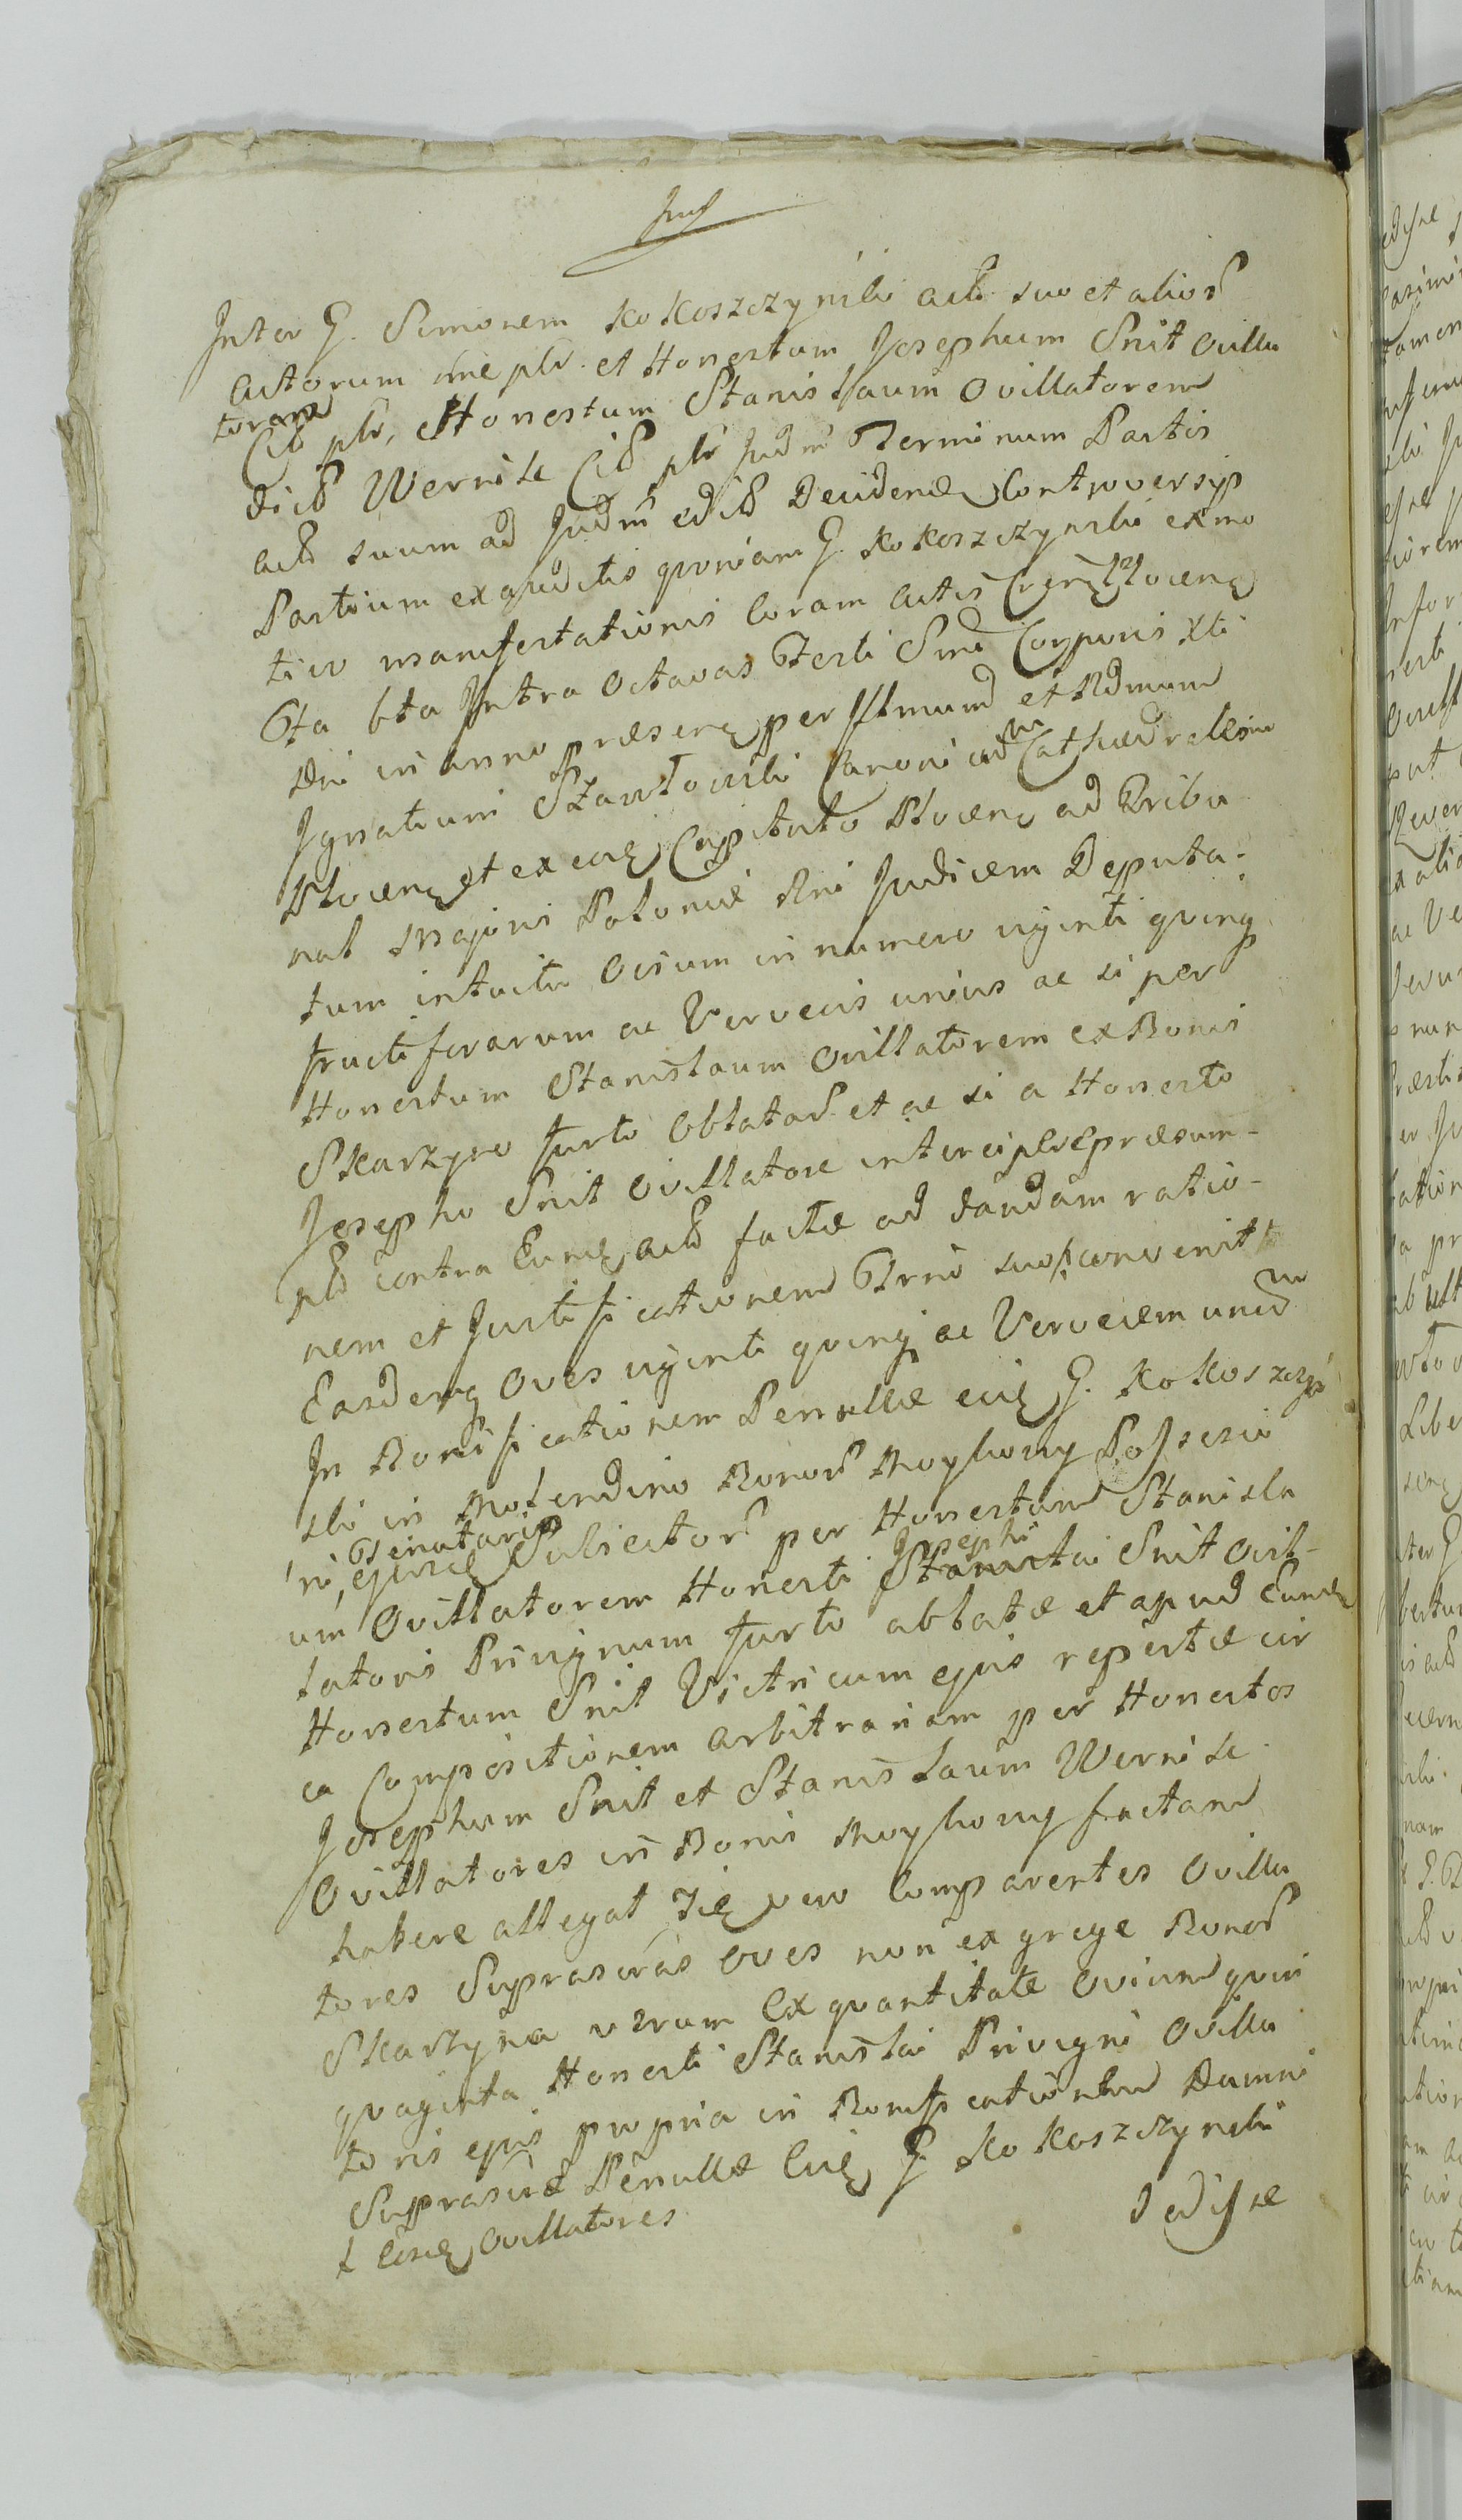 Inter G. Simonem Kokoszczynski actē suo et aliorᷣ
actorum nīe plē. et Honestum Josephum Snit Ovilla
torem
Citᷣ plē, Honestum Stanislaum Ovillatorem
dictᷣ Wernik Citᷣ plē Judm̄ Terminum Partis
actᷣ suum ad Judm̄ edictᷣ Decidenᷤ Controversijs
Partium exauditis quoniam G. Kokoszczynski ex mo
tivo manifestationis Coram Actis Crenᷤ Plocenᷤ
Fta bta Intra Octavas Festi Smi Corporis Xti
Dni in anno præsenᷤ per Illmum et Rdmum
Ignatium Szawłowski Canonicum Cathedralem
Plocenᷤ et ex eoᷤ Capitulo Plocenᷤ ad Tribu
nal Majoris Poloniæ Rni Judicem Deputa-
tum intuitu Ovium in numero viginti quinqᷤ
fructiferarum ac Vervecis unius ac si per
Honestum Stanislaum Ovillatorem ex Bonis
Skarzyno furto Oblatarᷣ et ac si a Honesto
Josepho Snit Ovillatore interceplᷤ præsum-
plᷣ contra Eunᷤ actᷣ factæ ad dandam ratio-
nem et Justificationem Frni suo convenit
Easdemq Oves viginti quinq ac Vervecem unum
In Bonificationem Pernullæ eiᷤ G. Kokoszczyn
ski in Molendino Bonorᷣ Mochowy Possessio
ni, ejusᷤ Tenutarij Subsectorᷣ per Honestum Stanisla
um Ovillatorem Honesti Josephi Snit Ovil-
latoris Privignum furto ablatæ et apud Eunᷤ
Honestum Snit Victricum ejus repertæ cir
ca Compositionem Arbitrariam per Honestos
Josephum Snit et Stanislaum Wernik
Ovillatores in Bonis Mochowy factam
habere allegat Iiᷤ vero Comparentes Ovilla
tores Suprascras Oves non ex grege Bonorᷣ
Skarzyna verum Ex quantitate Ovium quin
quaginta Honesti Stanislai Privigni Ovilla
toris ejus propria in Bonificationem Damni
Suprascræ Pernullæ Eiᷤ G. Kokoszczynski
Eosᷤ Ovillatores
dedisse